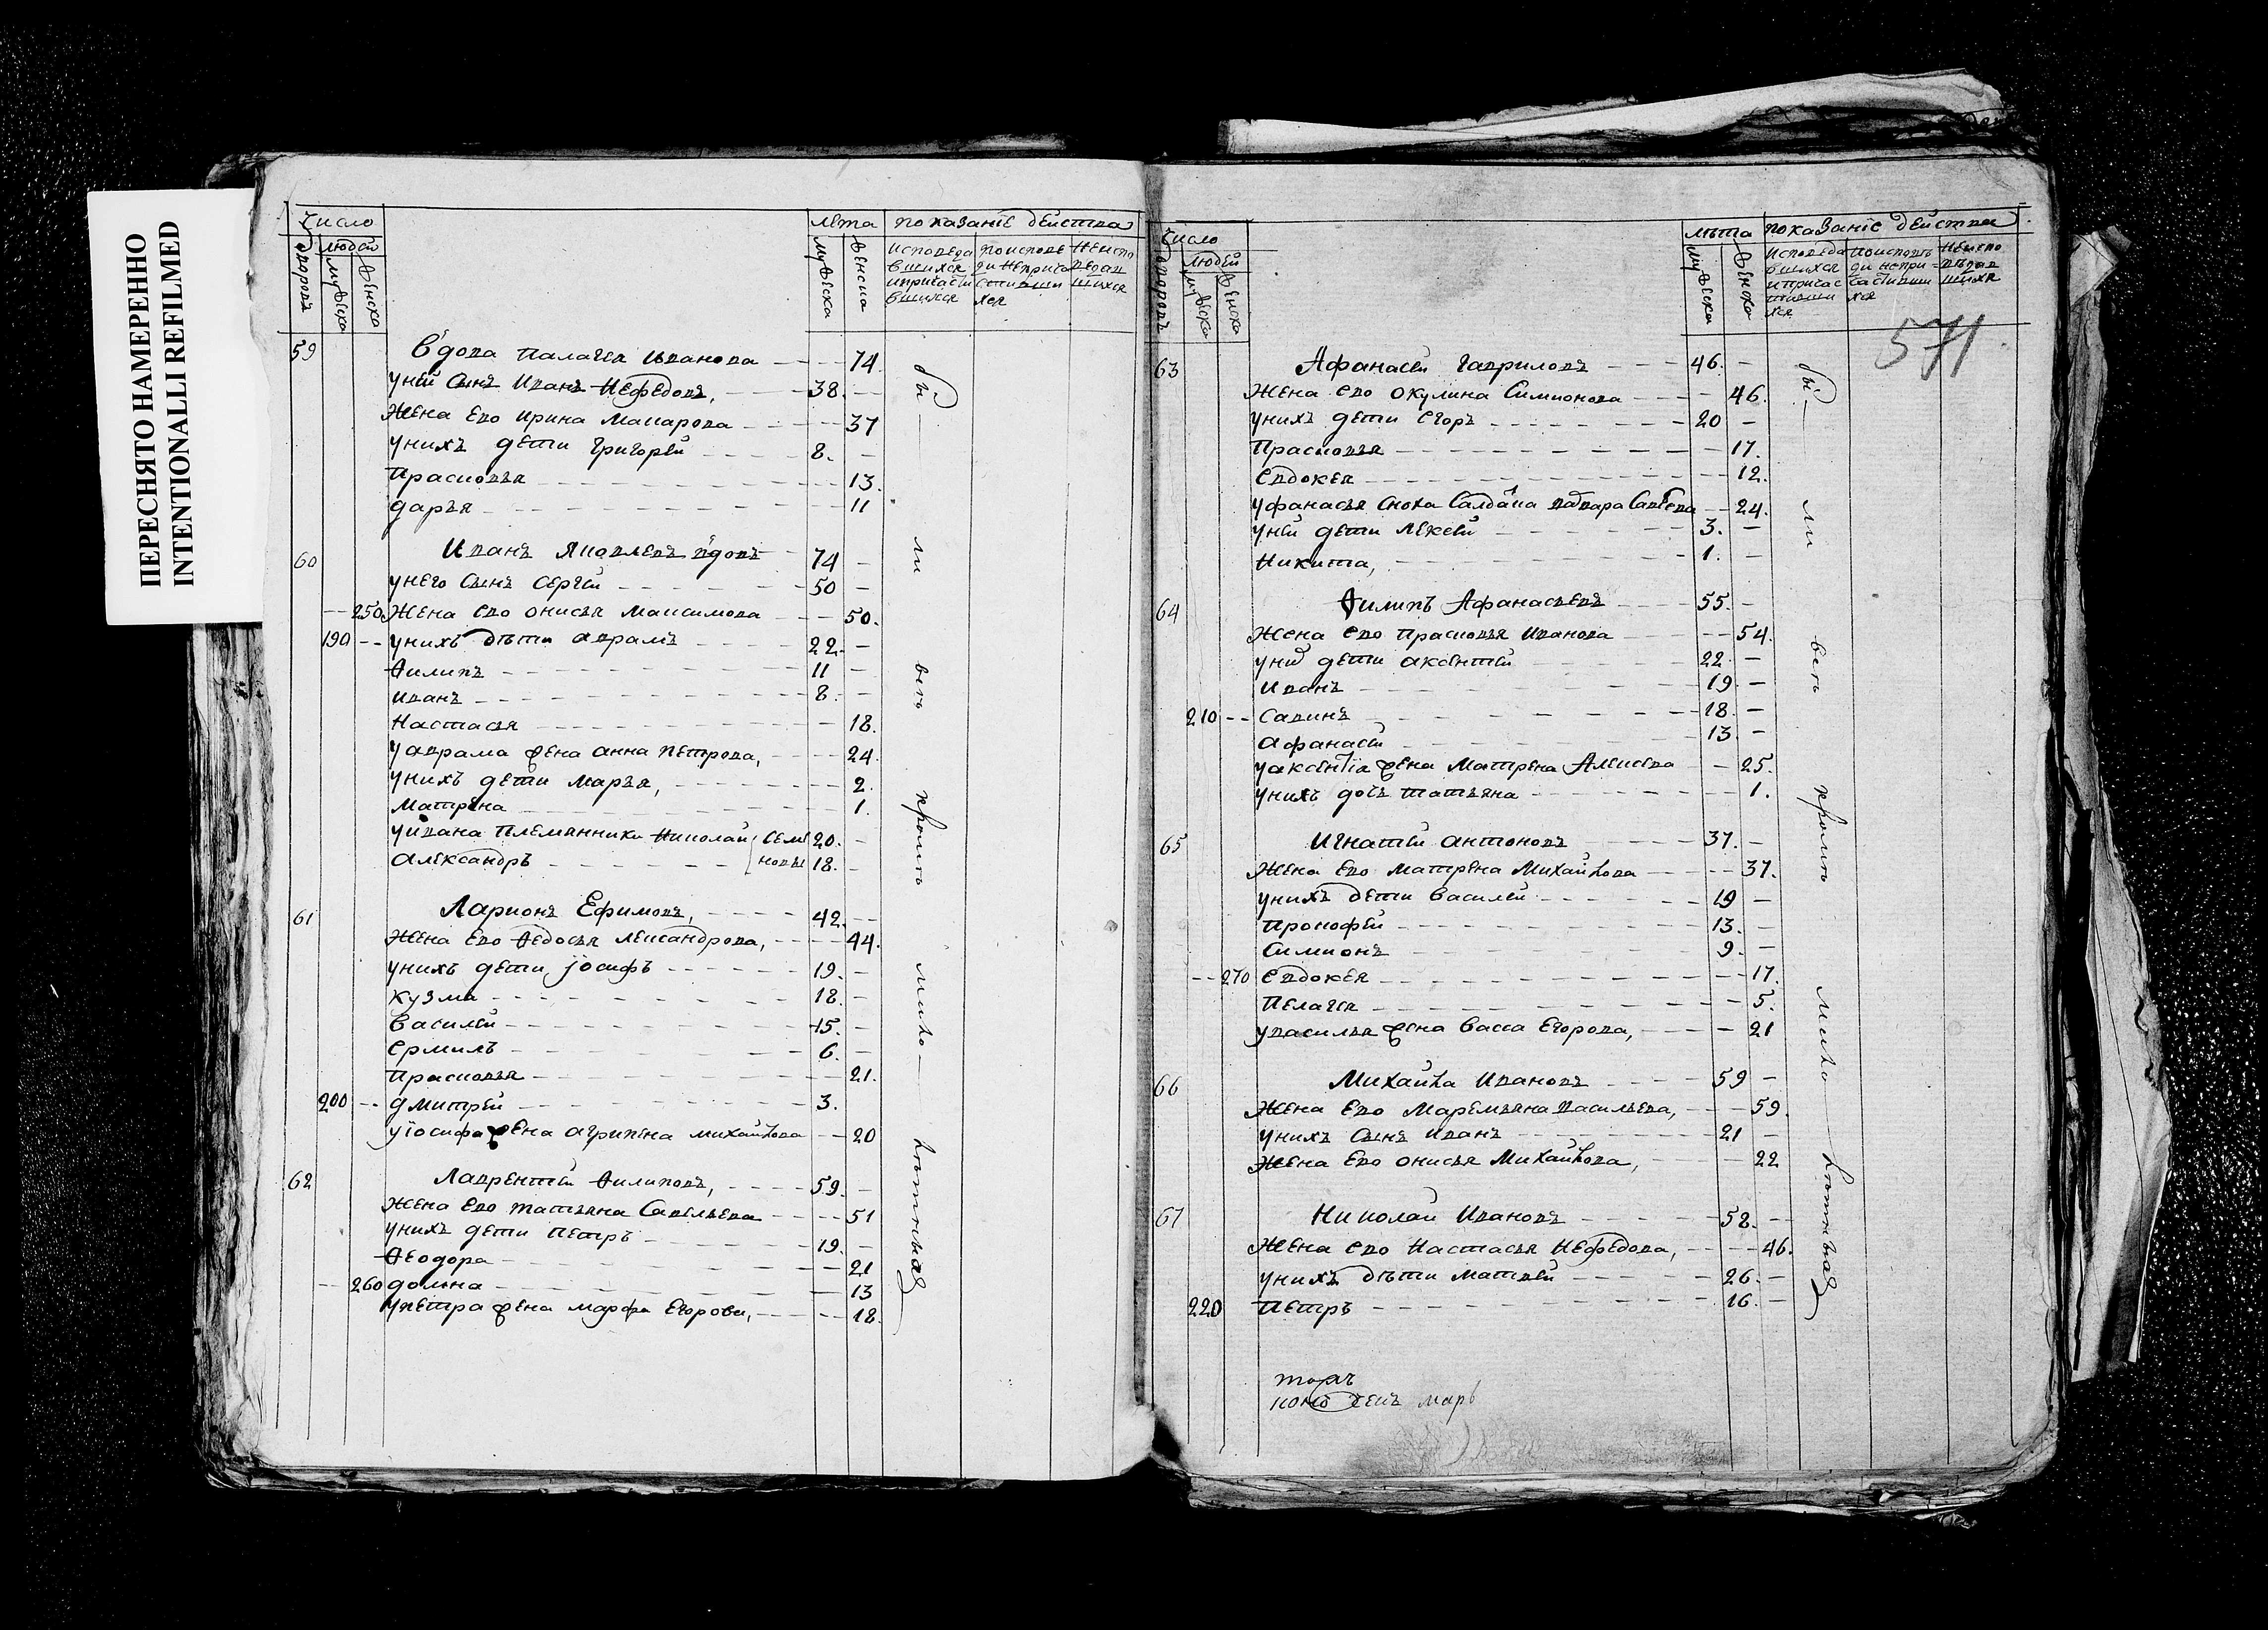 ПЕРЕСНЯТО НАМЕРЕННО
INTENTIONALLI REFILMED
Число
людей
дворовъ
мужеска
женска
лета
мужеска
женска
показанїе действа
исповеда вшихся ипричасти вшихся
поисповеди неприча стивши хся
неиспо ведав шихся
59 Вдова Палагея Иванова 74
унеи сынъ Иванъ Нефедовъ, 38.
жена ево Ирина Макарова 37
унихъ дети Григореи 8.
Прасковья 13.
дарья 11
60 Иванъ Яковлевъ вдовъ 74
унего сынъ Сергеи 50
250 Жена ево онисья Максимова 50.
190 унихъ дѣти аврамъ 22.
Филипъ 11
иванъ 8.
Настасья 18.
уаврама жена анна Петрова, 24.
унихъ дети марья, 2.
матрена 1.
уивана племянники Николаи семе 20.
александръ новы 18.
61 Ларионъ Ефимовъ, 42.
Жена ево Федосья лександрова, 44.
унихъ дети їосифъ 19.
кузма 18.
василеи 15.
ермилъ 6.
Прасковья 21.
200 дмитреи 3.
уїосифа жена агрипена михаилова 20
62 Лаврентеи Филиповъ, 59.
Жена ево татьяна Савельева 51
унихъ дети Петръ 19.
Феодора 21
260 домна 13
упетра жена марфа Егорова, 18.
бы ли веть кромть мило потныхаго
571
Число
людей
дворовъ
мужеска
женска
лѣта
мужеска
женска
показанїе действа
исповеда вшихся ипричас тивши хся
поисповѣ ди непри= частивши хся
неиспо вѣдав шихся
63 Афанасеи гавриловъ 46.
жена ево окулина Симионова 46.
унихъ дети егоръ 20
Прасковья 17.
евдокея 12.
уфанасья сноха салдатка варвара Савева 24.
унеи дети лексеи 3.
Никита, 1.
64 Филипъ Афанасьевъ 55.
жена ево прасковья иванова 54.
уних дети аксентеи 22.
иванъ 19.
210 савинъ 18.
афанасеи 13.
уаксентїа жена матрена Алексева 25.
унихъ дочь татьяна 1.
65 Игнатеи антоновъ 37.
Жена ево матрена михаилова 37.
унихъ дети василеи 19
прокофеи 13.
симионъ 9.
270 евдокея 17.
Пелагея 5.
увасилья жена васса Егорова, 21
66 Михаила ивановъ 59
Жена ево маремьяна васильева, 59.
унихъ сынъ иванъ 21
жена ево онисья михаилова, 22
67 Николаи ивановъ 52.
жена ево Настасья Нефедова, 46.
унихъ дѣти матвеи 26.
220 петръ 16.